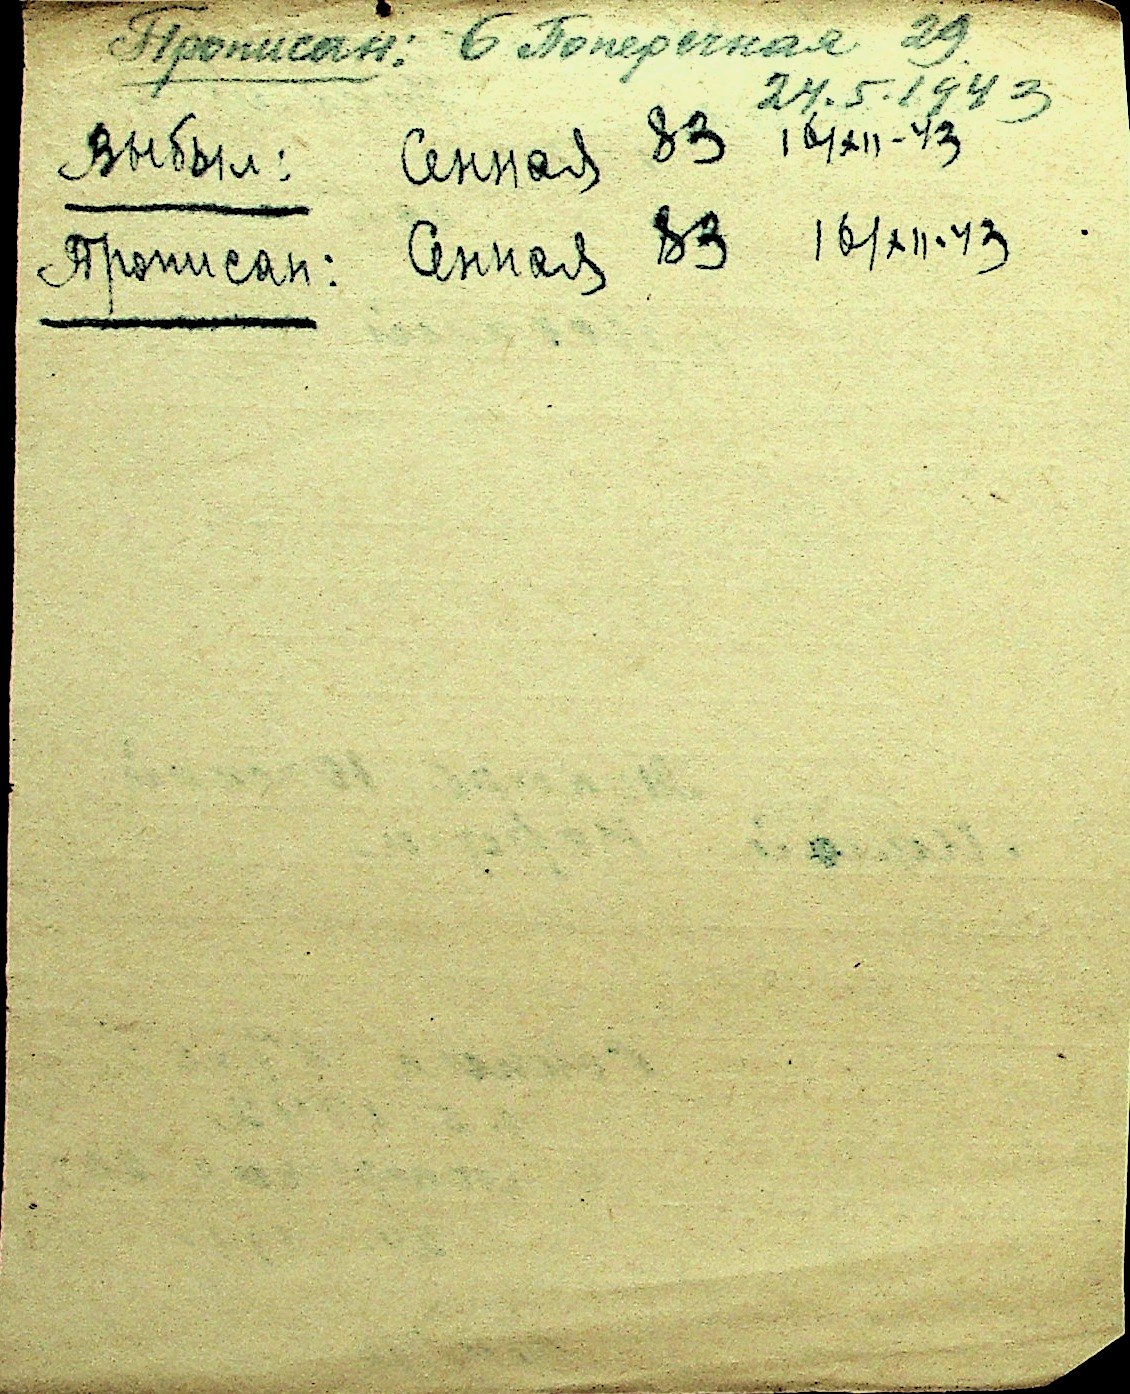 Прописан: 6 Поперечная 29.
24.5.1943
Выбыл: Сенная 83 16/XII-43
Прописан: Сенная 83 16/XII-43